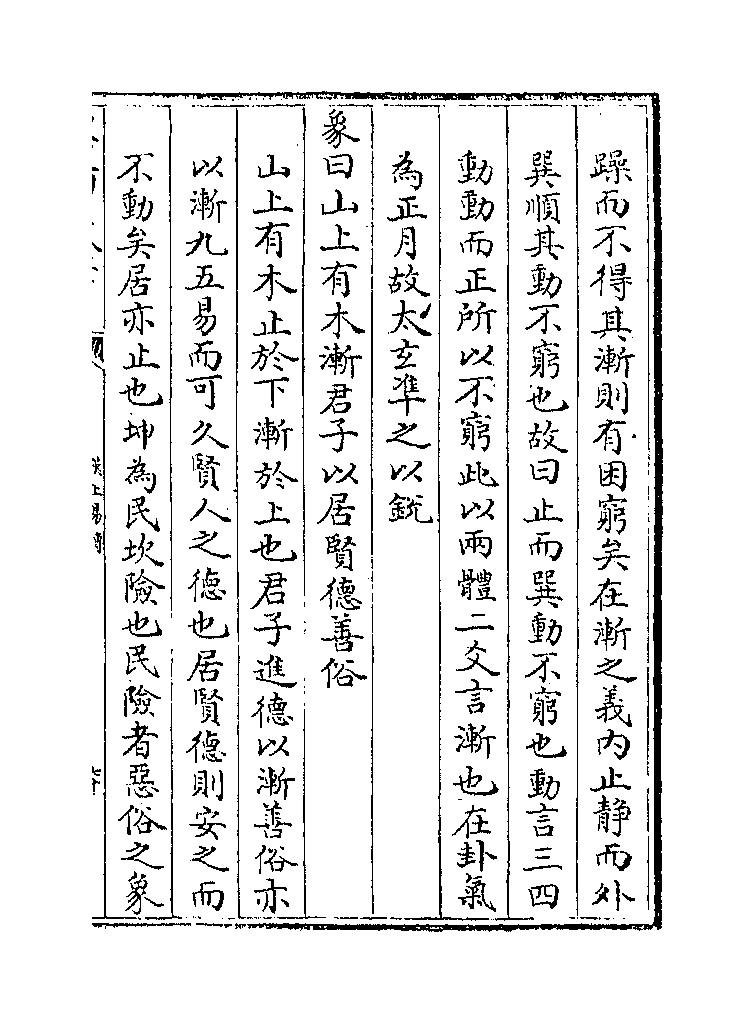 躁而不得其漸則有困窮矣在漸之義内止靜而外
巽順其動不窮也故曰止而巽動不窮也動言三四
動動而正所以不窮此以兩體二爻言漸也在卦氣
為正月故太玄準之以銳
象曰山上有木漸君子以居賢德善俗
山上有木止於下漸於上也君子進德以漸善俗亦
以漸九五易而可久賢人之德也居賢德則安之而
不動矣居亦止也坤為民坎險也民險者惡俗之象
漢上易傳